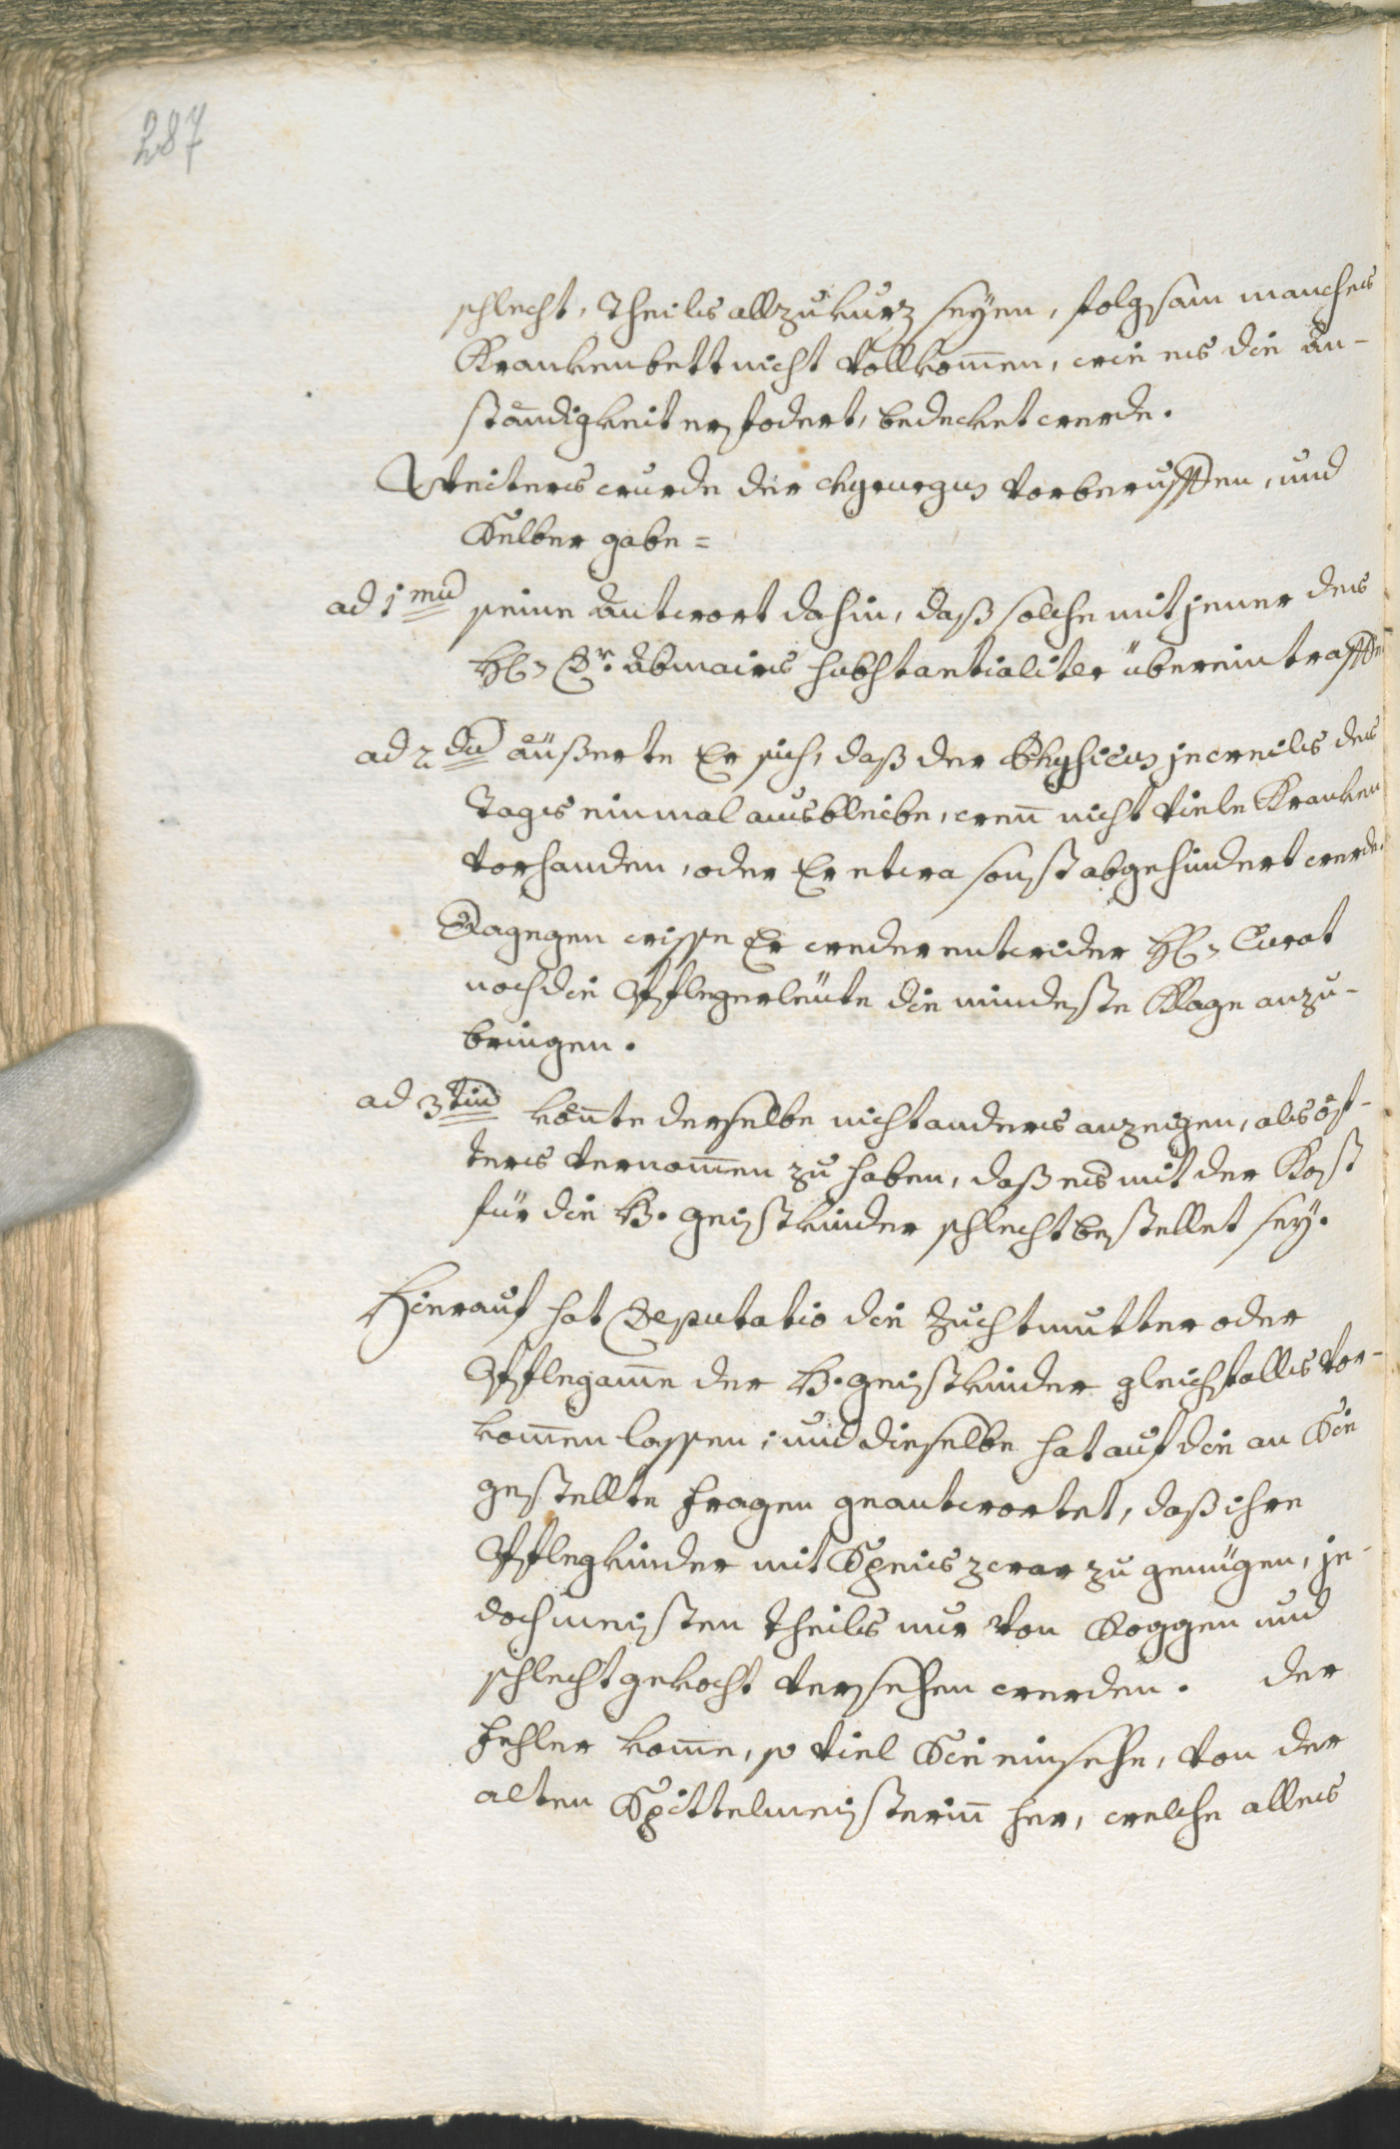 287
schlecht, Theils allzukurz seyen, folgsam manches
Krankenbett nicht vollkom̄en, wie es die An-
ständigkeit erfodert, bedecket werde.
Weiters wurde der Chyrurgus vorberuffen, und
Selber gabe =
ad 1mū seine Antwort dahin, daß solche mit jener des
H: Dr. Abmairs substantialiter übereintraffe
ad 2dū äüßerte Er sich, daß der Physicus jeweils des
Tags einmal ausbleibe, weñ nicht viele Kranken
vorhanden, oder Er etwa sonst abgehindert werde.
Dagegen wisse Er weder entwider H: Curat
noch die Pflegerleüte die mindeste Klage anzu-
bringen.
ad 3tiū köñte derselbe nicht anders anzeigen, als öf-
ters vernom̄en zu haben, daß es mit der Kost
für die H. geistkinder schlecht bestellet sey.
Hierauf hat Deputatio die Zuchtmutter oder
Pflegam̄e der H. geistkinder gleichfalls vor-
kom̄en lassen; und dieselbe hat auf die an Sie
gestellte Fragen geantwortet, daß ihre
Pflegkinder mit Speis zwar zu genügen, je-
doch meisten Theils nur von Roggen und
schlecht gekocht versehen werden. Der
Fehler kom̄e, so viel Sie einsehe, von der
alten Spittelmeisteriñ her, welche alles